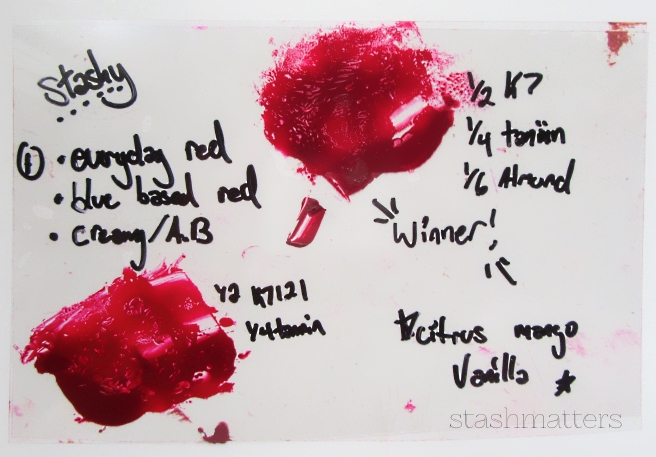 Stashy
① • everyday red
• blue based red
• creamy/A.B
1/2 K7
1/4 tamin
1/6 Almond
Winner!
1/2 K7121
1/4 tamin
☆ citrus mango
Vanilla ☆
stashmatters